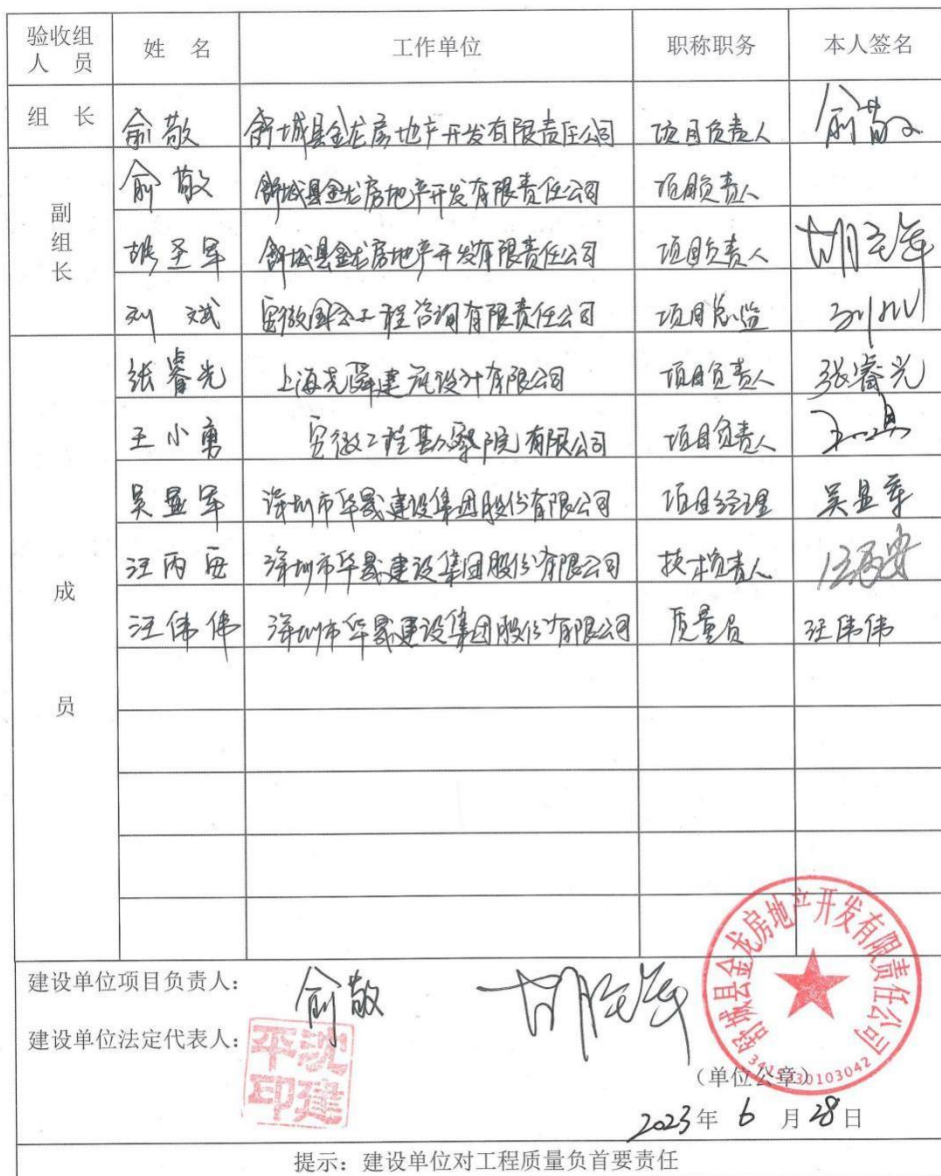 验收组人员 姓名 工作单位 职称职务 本人签名
组长 俞敬 舒城县金龙房地产开发有限责任公司 项目负责人 俞敬
副组长 俞敬 舒城县金龙房地产开发有限责任公司 项目负责人
胡圣军 舒城县金龙房地产开发有限责任公司 项目负责人 胡圣军
刘斌 安徽国公工程咨询有限责任公司 项目总监 刘斌
成员 张睿光 上海尧舜建筑设计有限公司 项目负责人 张睿光
王小勇 安徽工程勘察院有限公司 项目负责人
吴显军 深圳市华晟建设集团股份有限公司 项目经理 吴显军
汪丙安 深圳市华晟建设集团股份有限公司 技术负责人 汪丙安
汪伟伟 深圳市华晟建设集团股份有限公司 质量员 汪伟伟
建设单位项目负责人: 俞敬 胡圣军
建设单位法定代表人: 沈建平印
舒城县金龙房地产开发有限责任公司
(单位公章)
2023年6月28日
提示:建设单位对工程质量负首要责任